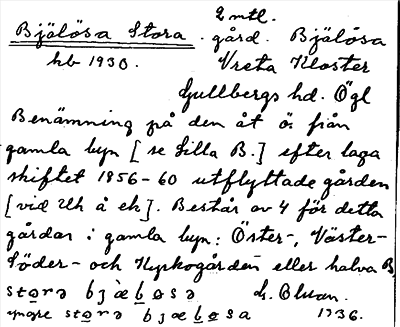 2 mtl.
Bjälösa Stora. gård. Bjälösa
hb 1930. Vreta Kloster
Gullbergs hd. Ögl
Benämning på den åt ö. från
gamla byn [se Lilla B.] efter laga
skiftet 1856-60 utflyttade gården
[vid Uh å ek]. Består av 4 för detta
gårdar i gamla byn: Öster-, Väster-
Söder- och Kyrkogården eller halva B.
sto̲rə bjæ̀b̲ø̲sə
yngre sto̲rə bjæb̲ø̲sa 1936.